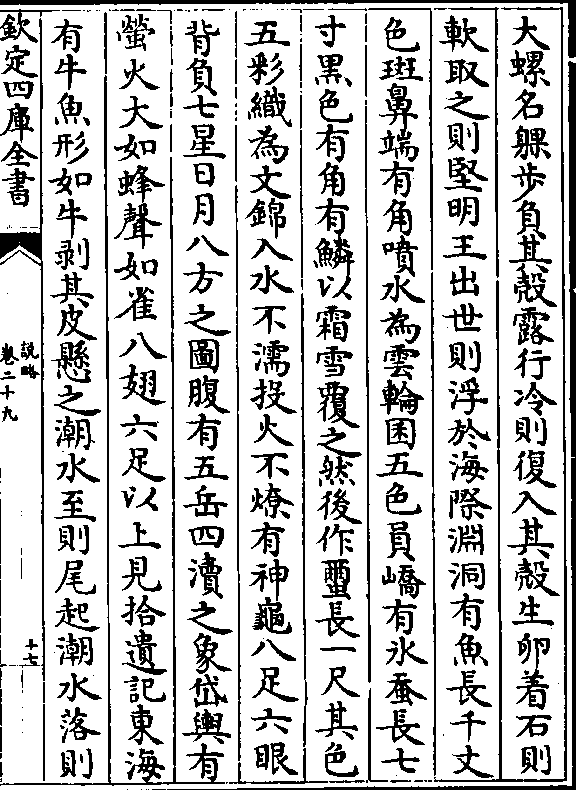 大螺名躶步負其殼露行冷則復入其殼生卵着石則
軟取之則堅明王出世則浮於海際淵洞有魚長千丈
色斑鼻端有角噴水為雲輪囷五色員嶠有氷蚕長七
寸黒色有角有鱗以霜雪覆之然後作蠒長一尺其色
五彩織為文錦入水不濡投火不燎有神龜八足六眼
背負七星日月八方之圖腹有五岳四瀆之象岱輿有
螢火大如蜂聲如雀八翅六足以上見拾遺記東海
有牛魚形如牛剥其皮懸之潮水至則尾起潮水落則
欽定四庫全書
說略
卷二十九
十七